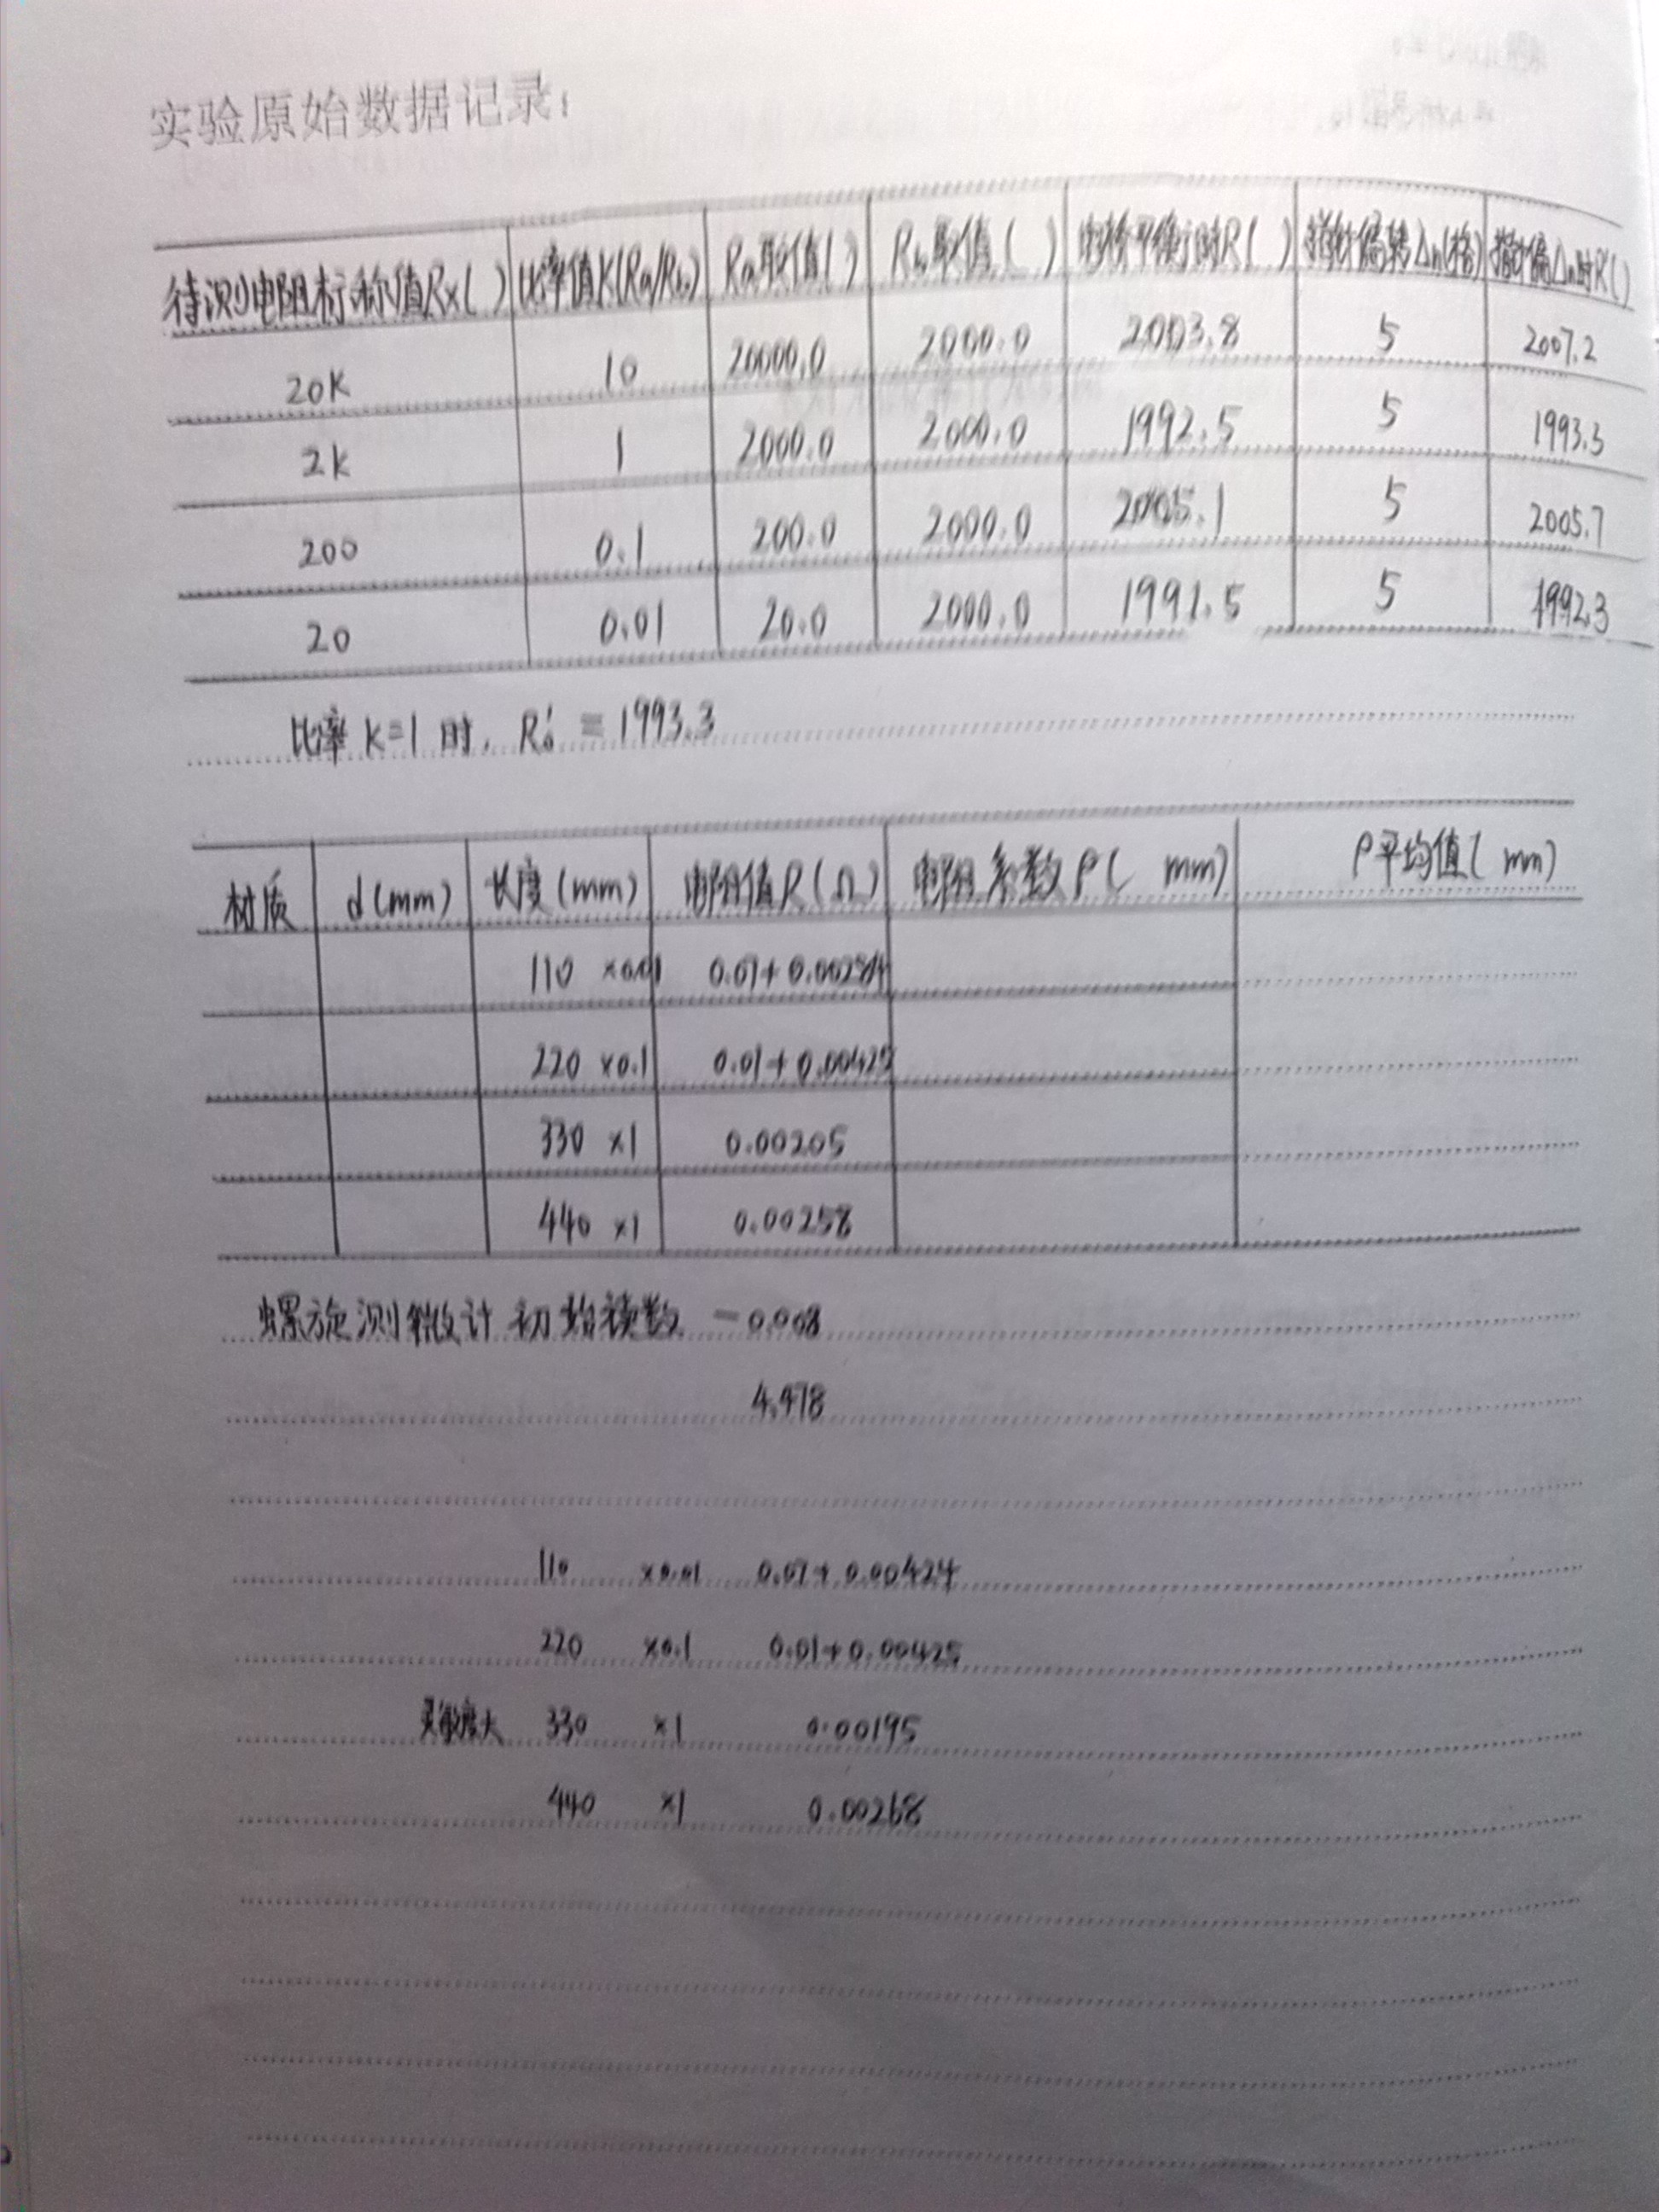 实验原始数据记录:
待测电阻标称值Rx( ) 比率值K(Ra/Rb) Ra取值( ) Rb取值( ) 电桥平衡时R( ) 指针偏转Δn(格) 指针偏Δn时R'( )
20K 10 20000.0 2000.0 2003.8 5 2007.2
2K 1 2000.0 2000.0 1992.5 5 1993.3
200 0.1 200.0 2000.0 2005.1 5 2005.7
20 0.01 20.0 2000.0 1991.5 5 1992.3
比率 K=1 时, R₀' = 1993.3
材质 d(mm) 长度(mm) 电阻值R(Ω) 电阻系数ρ( mm) ρ平均值( mm)
110 ×0.01 0.07+0.00284
220 ×0.1 0.01+0.00425
330 ×1 0.00205
440 ×1 0.00258
螺旋测微计 初始读数 -0.008
4.978
110 ×0.01 0.07+0.00424
220 ×0.1 0.01+0.00425
灵敏度大 330 ×1 0.00195
440 ×1 0.00268